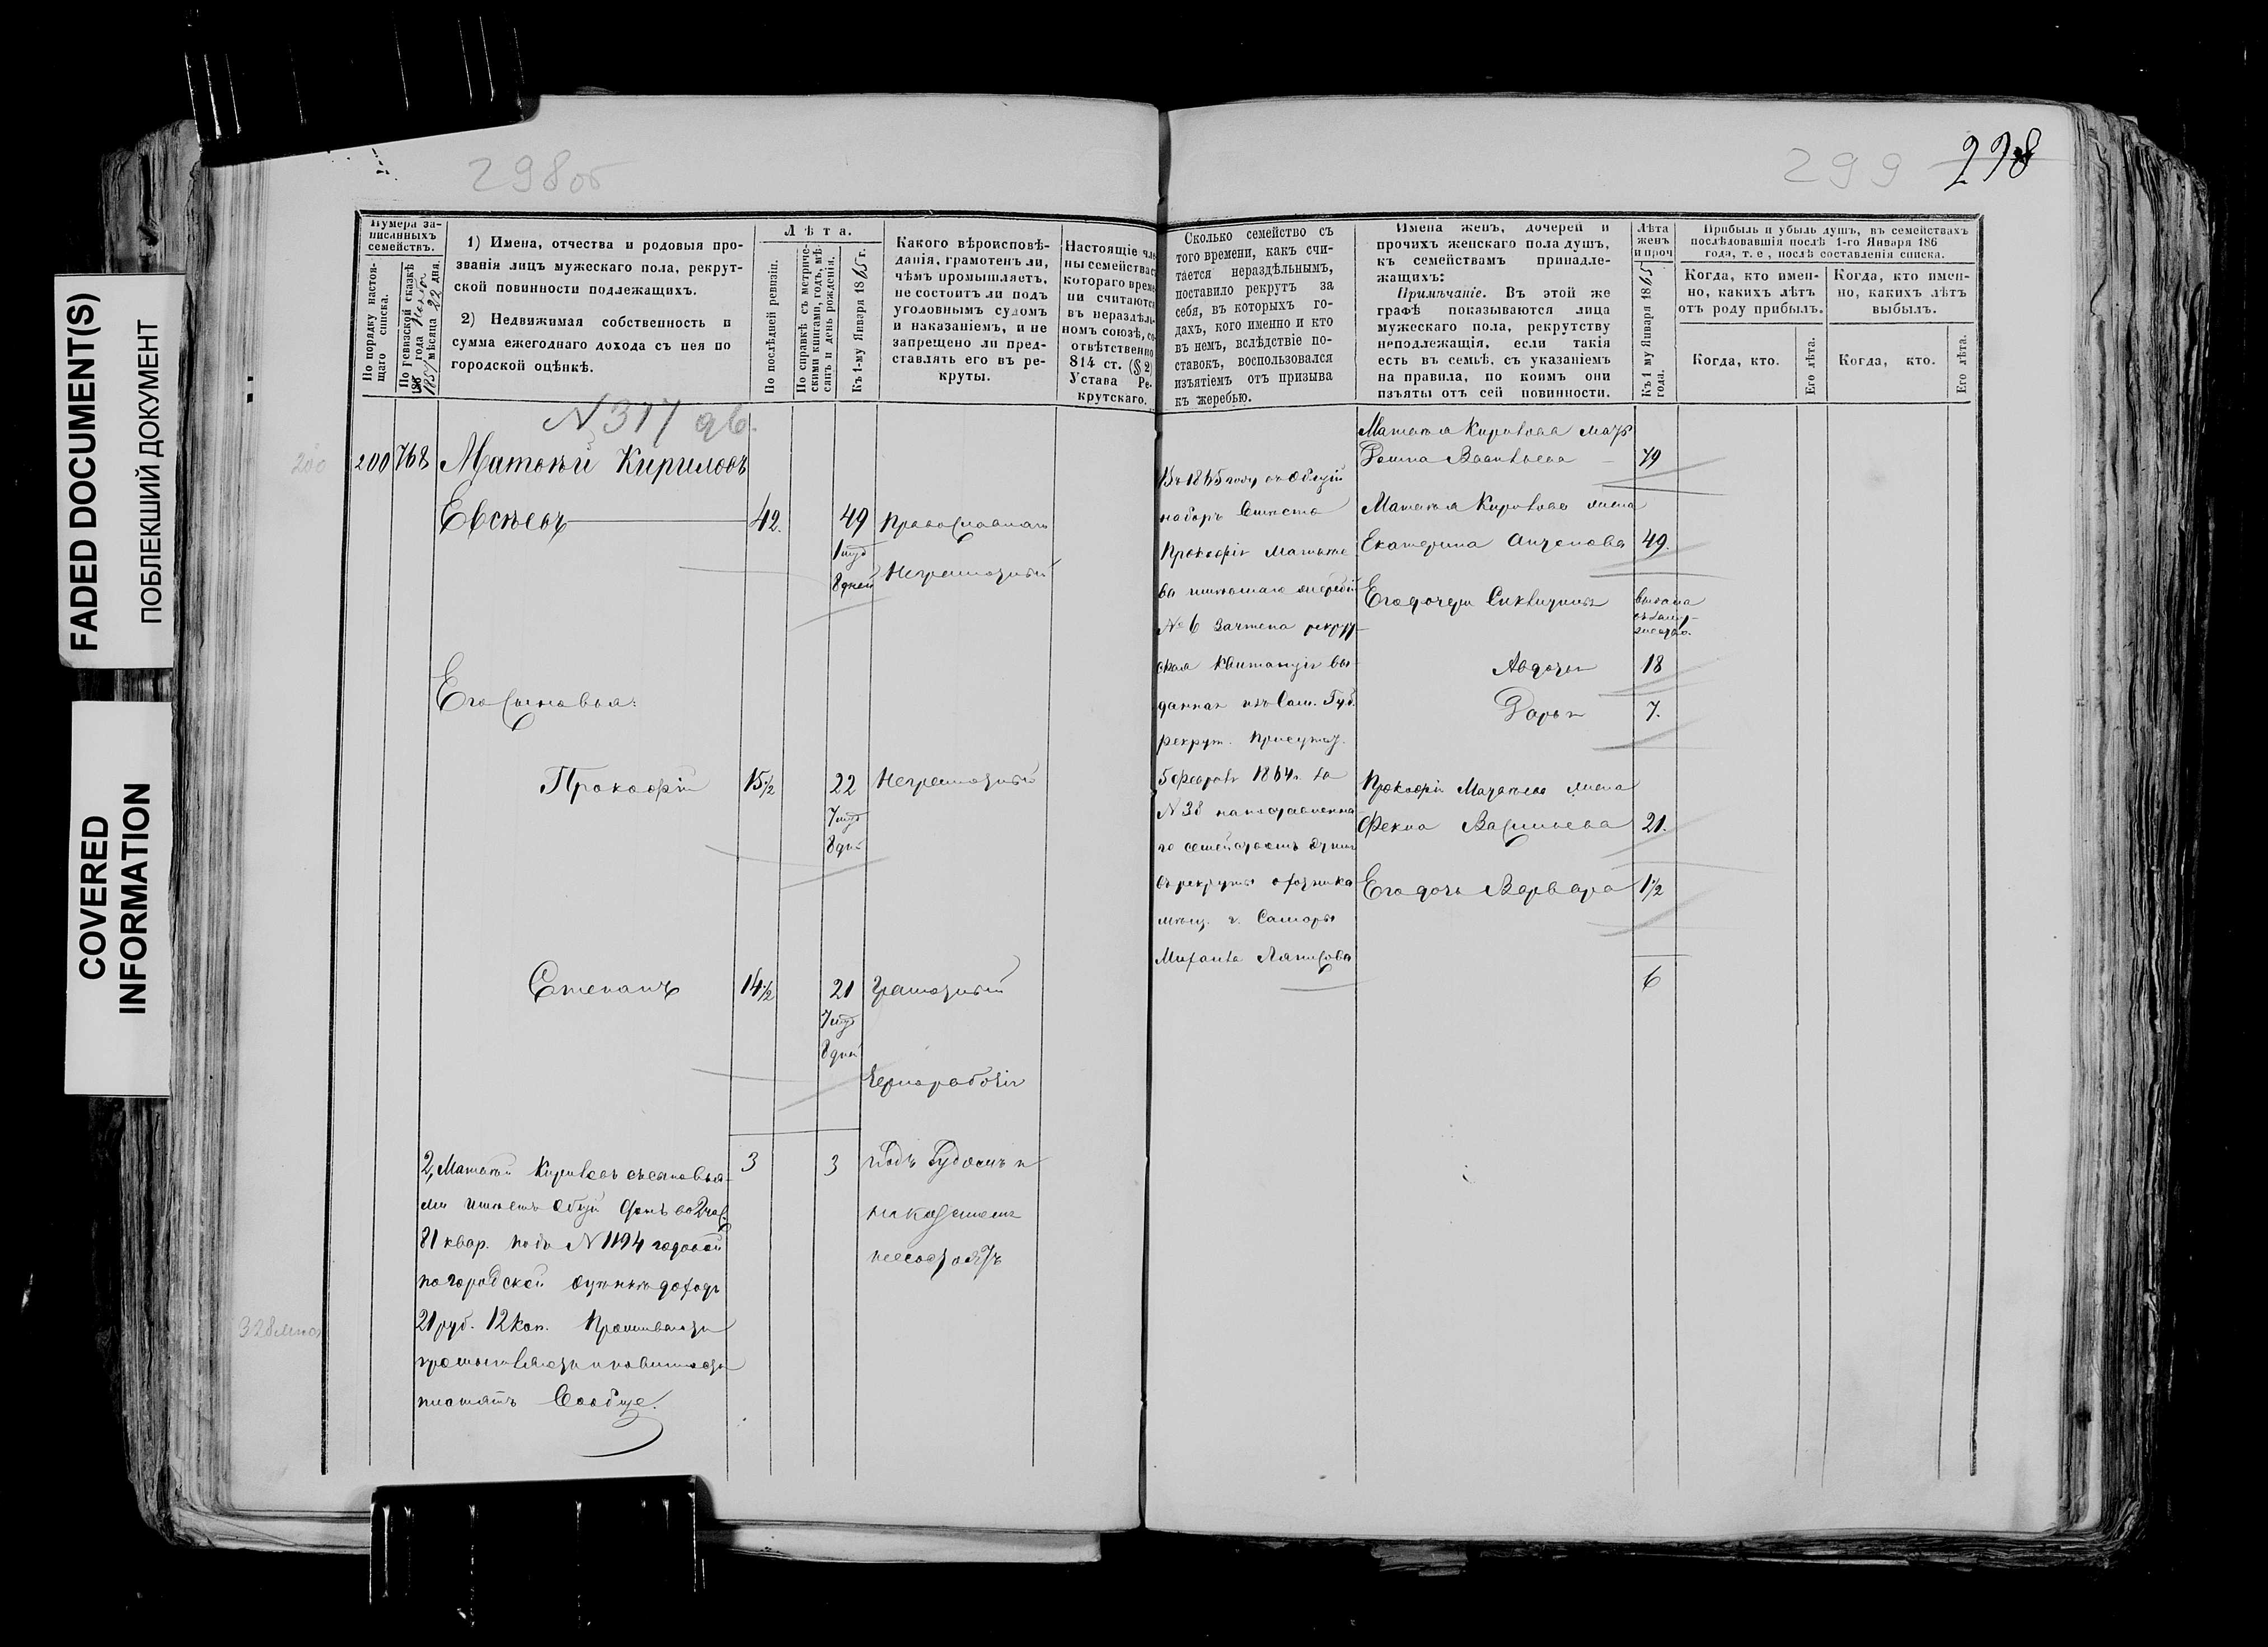 FADED DOCUMENT(S)
ПОБЛЕКШИЙ ДОКУМЕНТ
COVERED
INFORMATION
298об
299
298
Нумера за-
писанныхъ
семействъ.
По порядку настоя-
щаго списка.
По ревизской сказкѣ
года
мѣсяца 22 дня.
1) Имена, отчества и родовыя про-
званія лицъ мужескаго пола, рекрут-
ской повинности подлежащихъ.
2) Недвижимая собственность и
сумма ежегоднаго дохода съ нея по
городской оцѣнкѣ.
Лѣта.
По послѣдней ревизіи.
По справкѣ съ метриче-
скими книгами, годъ, мѣ-
сяцъ и день рожденія.
Къ 1-му Января 1865 г.
Какого вѣроисповѣ-
данія, грамотенъ ли,
чѣмъ промышляетъ,
не состоитъ ли подъ
уголовнымъ судомъ
и наказаніемъ, и не
запрещено ли пред-
ставлять его въ ре-
круты.
Настоящіе чле
ны семейства с
котораго време
ни считаются
въ нераздѣль-
номъ союзѣ, со-
отвѣтственно
814 ст. (§ 2)
Устава Ре-
крутскаго.
N 317 дв.
200
200 768 Матвѣй Кириловъ
Евсѣевъ 42. 49 Православнаго
1 мѣс
8 дней Неграмотный
Его сыновья:
Прокофій 15½ 22 Неграмотный
7 мѣс
8 дн
Степанъ 14½ 21 Грамотный
7 мѣс
8 дней
Чернорабочіе
3 3 Подъ судомъ и
наказаніемъ
несостоятъ
2, Матвѣй Кириловъ съ сыновья-
ми имѣетъ общій домъ во 2 час.
81 квар. подъ N 1194 годовой
по городской оцѣнкѣ доходъ
21 руб. 12 коп. Проживаютъ
промышляютъ и повинности
платятъ Сообще.
Сколько семейство съ
того времени, какъ счи-
тается нераздѣльнымъ,
поставило рекрутъ за
себя, въ которыхъ го-
дахъ, кого именно и кто
въ немъ, вслѣдствіе по-
ставокъ, воспользовался
изъятіемъ отъ призыва
къ жеребью.
Имена женъ, дочерей и
прочихъ женскаго пола душъ,
къ семействамъ принадле-
жащихъ:
Примѣчаніе. Въ этой же
графѣ показываются лица
мужескаго пола, рекрутству
неподлежащія, если такія
есть въ семьѣ, съ указаніемъ
на правила, по коимъ они
изъяты отъ сей повинности.
Лѣта
женъ
и проч
Къ 1 му Января 1865
года.
Прибыль и убыль душъ, въ семействахъ
послѣдовавшія послѣ 1-го Января 186
года, т. е., послѣ составленія списка.
Когда, кто имен-
но, какихъ лѣтъ
отъ роду прибылъ.
Когда, кто имен-
но, какихъ лѣтъ
выбылъ.
Когда, кто.
Его лѣта.
Когда, кто.
Его лѣта.
Въ 1865 году въ общій
наборъ вмѣсто
Прокофія Матвѣе
ва имѣвшаго жеребій
№ 6 зачтена рекрут
ская квитанція вы
данная изъ Сам. Губ.
рекрут. Присутст.
5 Февраля 1864 г. за
N 38 на поставленна
го семействомъ этимъ
въ рекруты охотника
мѣщ. г. Самары
Михаила
Матвѣя Кирилова мать
Васильева 79
Матвѣя Кирилова жена
Екатерина Антонова 49.
Его дочери выдана
въ замуж-
Авдотья 18
Дарья 7.
Прокофія Матвѣева жена
Фекла Васильева 21.
Его дочь Варвара 1½
6